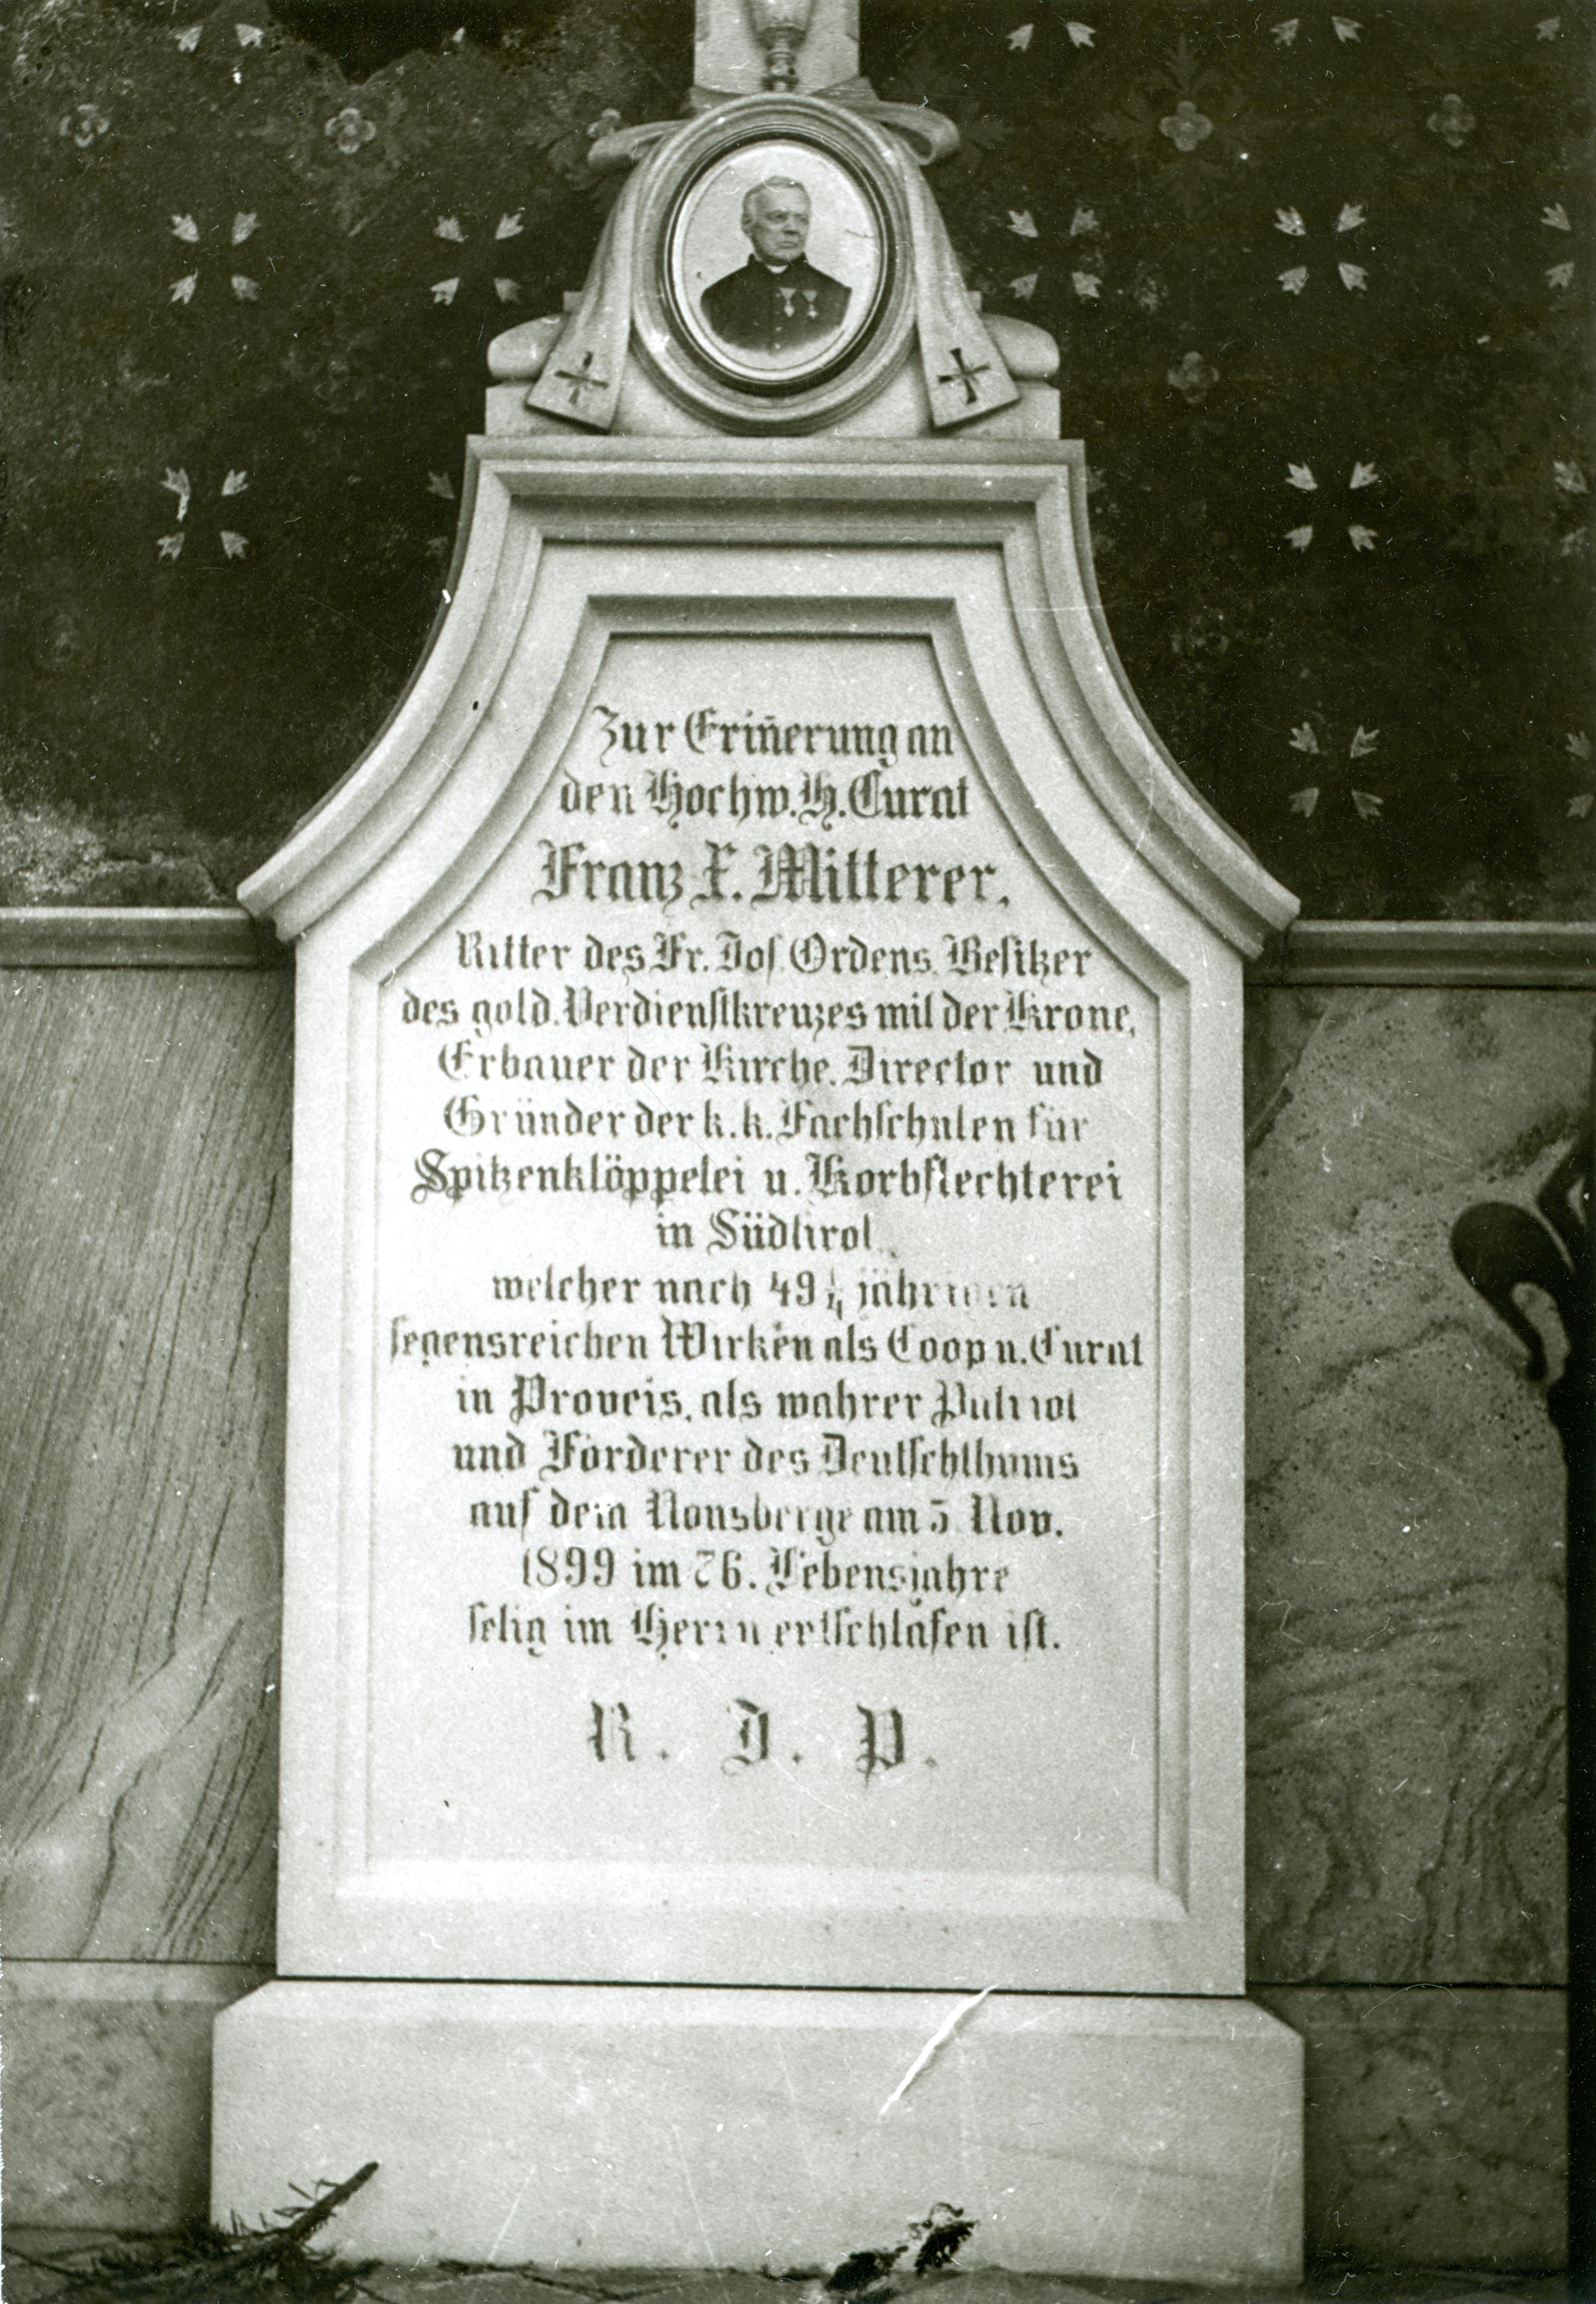 Zur Erin̄erung an
den Hochw. H. Curat
Franz X. Mitterer,
Ritter des Fr. Jos. Ordens, Besitzer
des gold. Verdienstkreuzes mit der Krone,
Erbauer der Kirche, Director und
Gründer der k. k. Fachschulen für
Spitzenklöppelei u. Korbflechterei
in Südtirol,
welcher nach 49 1/4 jährigen
segensreichen Wirken als Coop u. Curat
in Proveis, als wahrer Patriot
und Förderer des Deutschthums
auf dem Nonsberge am 5. Nov.
1899 im 76. Lebensjahre
selig im Herrn entschlafen ist.
R. I. P.